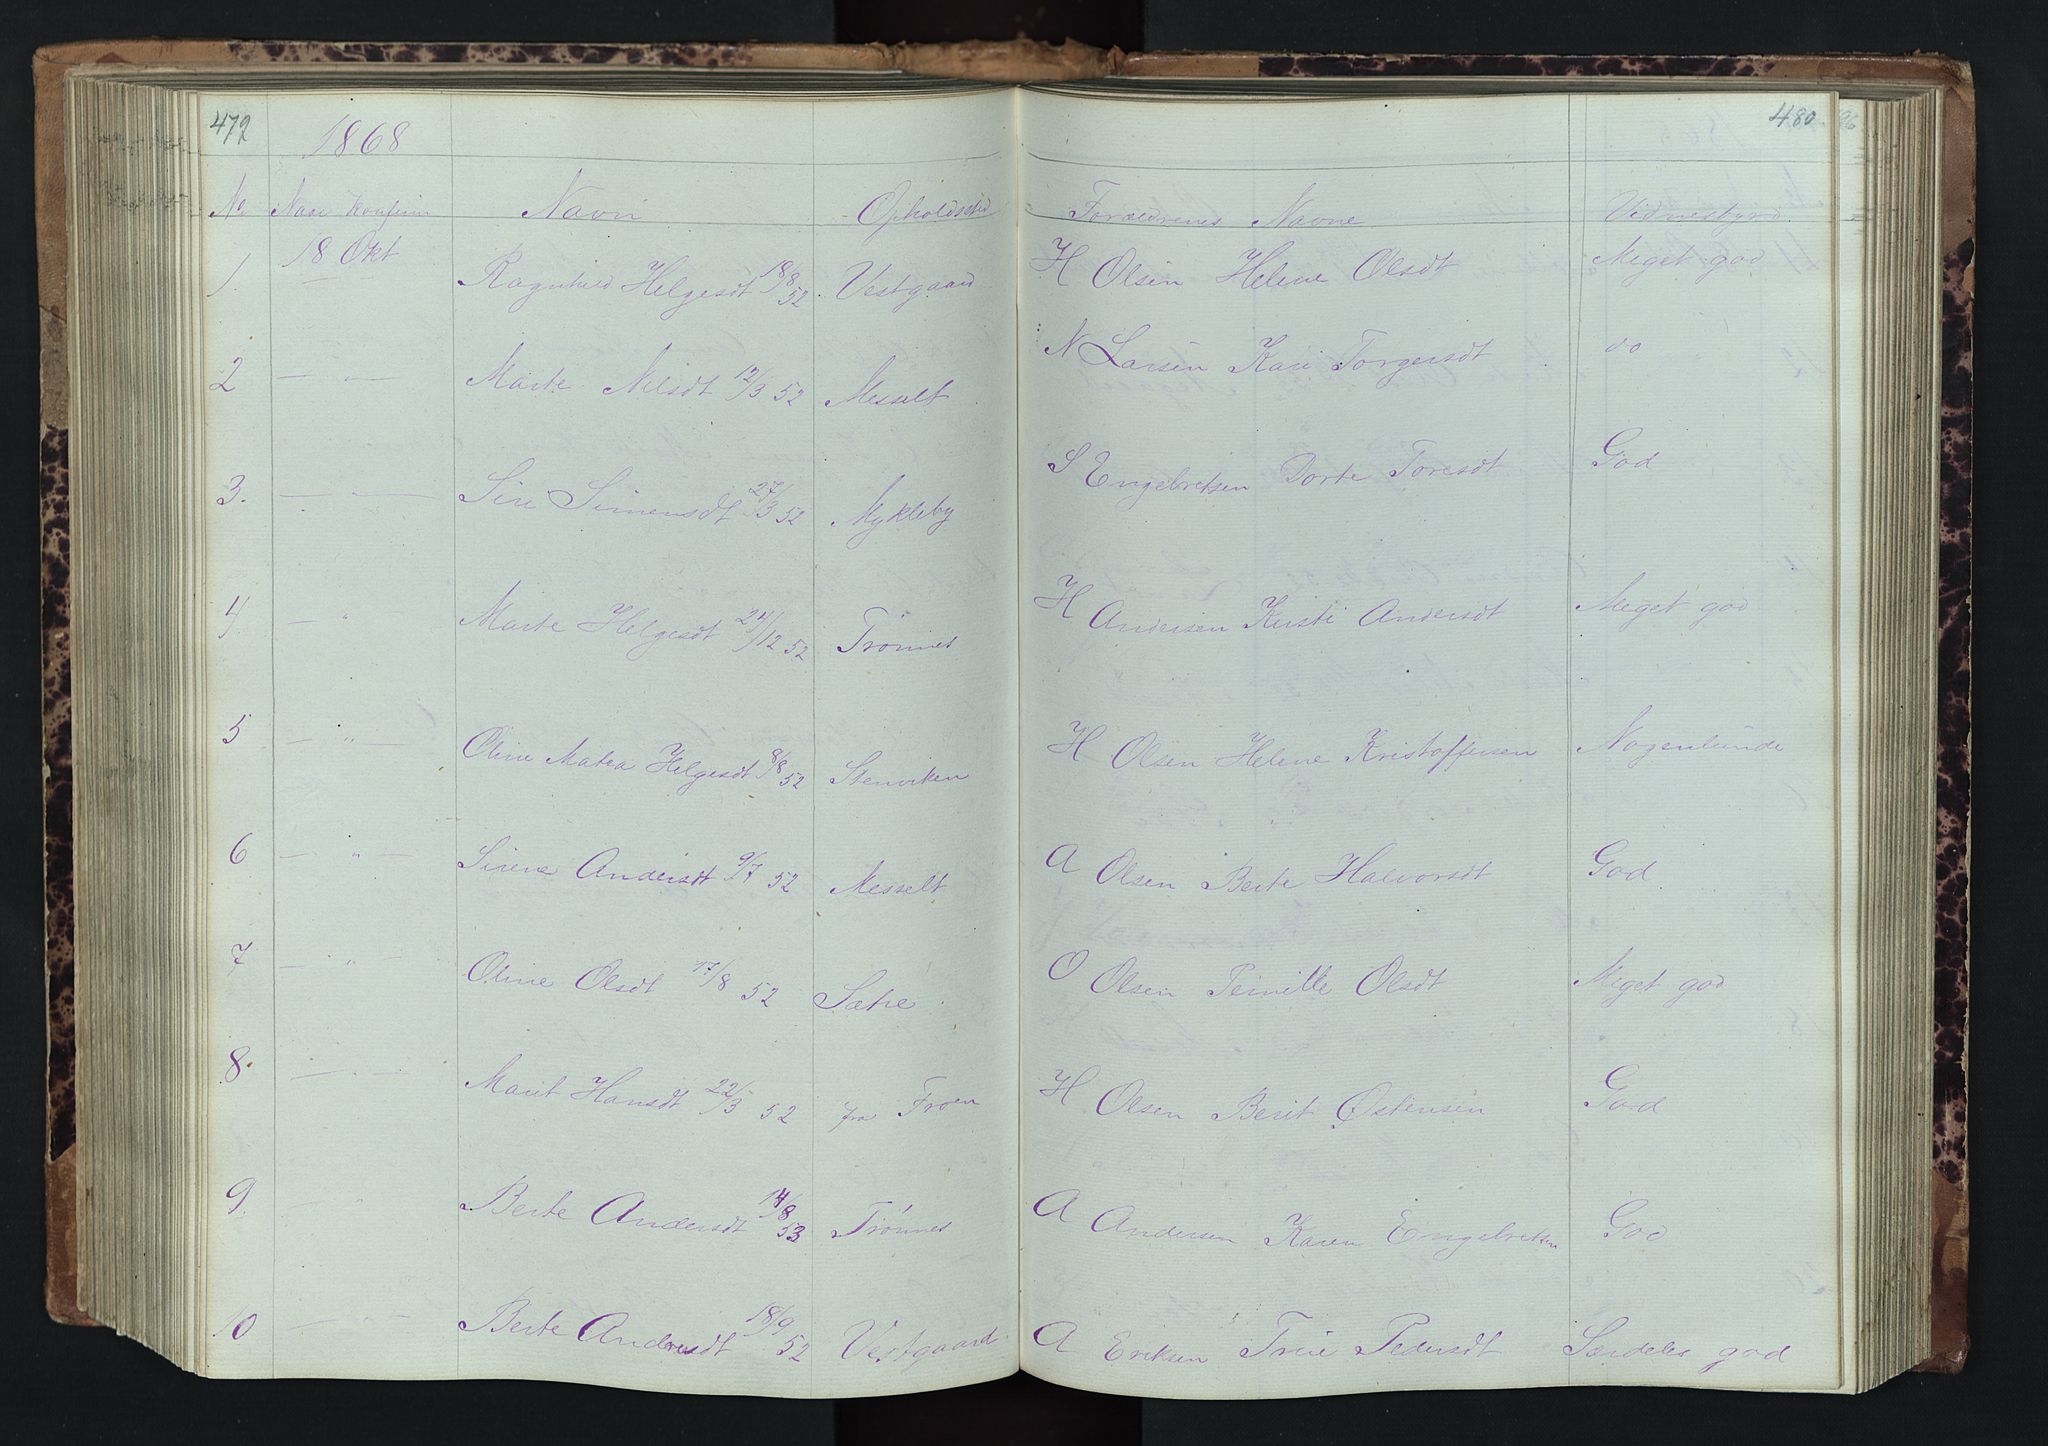 472 1868 480
No Naar Konfirm Navn Opholdsted Forældrenes Navne Vidnesbyrd
1. 18 Okt Ragnhild Helgesdt 18/8 52 Vestgaard H Olsen Helene Olsdt Meget god
2 — " — Marte Nilsdt 12/3 52 Messelt N Larsen Kari Torgersdt do
3. — " — Siri Simensdt 27/3 52 Mykleby S Engebretsen Dorte Toresdt God
4. — " Marte Helgesdt 24/12 52 Trønnes H Andersen Kersti Andersdt Meget god
5 — " — Oline Matea Helgesdt 8/8 52 Stenviken H Olsen Helene Kristoffersen Nogenlunde
6 — " — Sirene Andersdt 9/7 52 Messelt A Olsen Berte Halvorsdt God
7 — " — Oline Olsdt 17/8 52 Sætre O Olsen Pernille Olsdt Meget god
8. — " — Marit Hansdt 22/3 52 fra Froen H Olsen Berit Østensen God
9. — " Berte Andersdt 14/8 53 Trønnes A Andersen Karen Engebretsen God
10 — " — Berte Andersdt 18/9 52 Vestgaard A Eriksen Trine Pedersdt Særdeles god